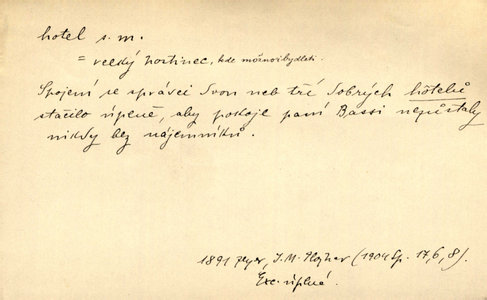 hotel s. m.
= velký hostinec, kde možno i bydleti.
Spojení se správci dvou neb tří dobrých hôtelů
stačilo úplně, aby pokoje paní Bassi nezůstaly
nikdy bez nájemníků.
1891 Zeyer, J. M. Plojhar (1904 Sp. 17, 6, 8).
Exc. úplné.